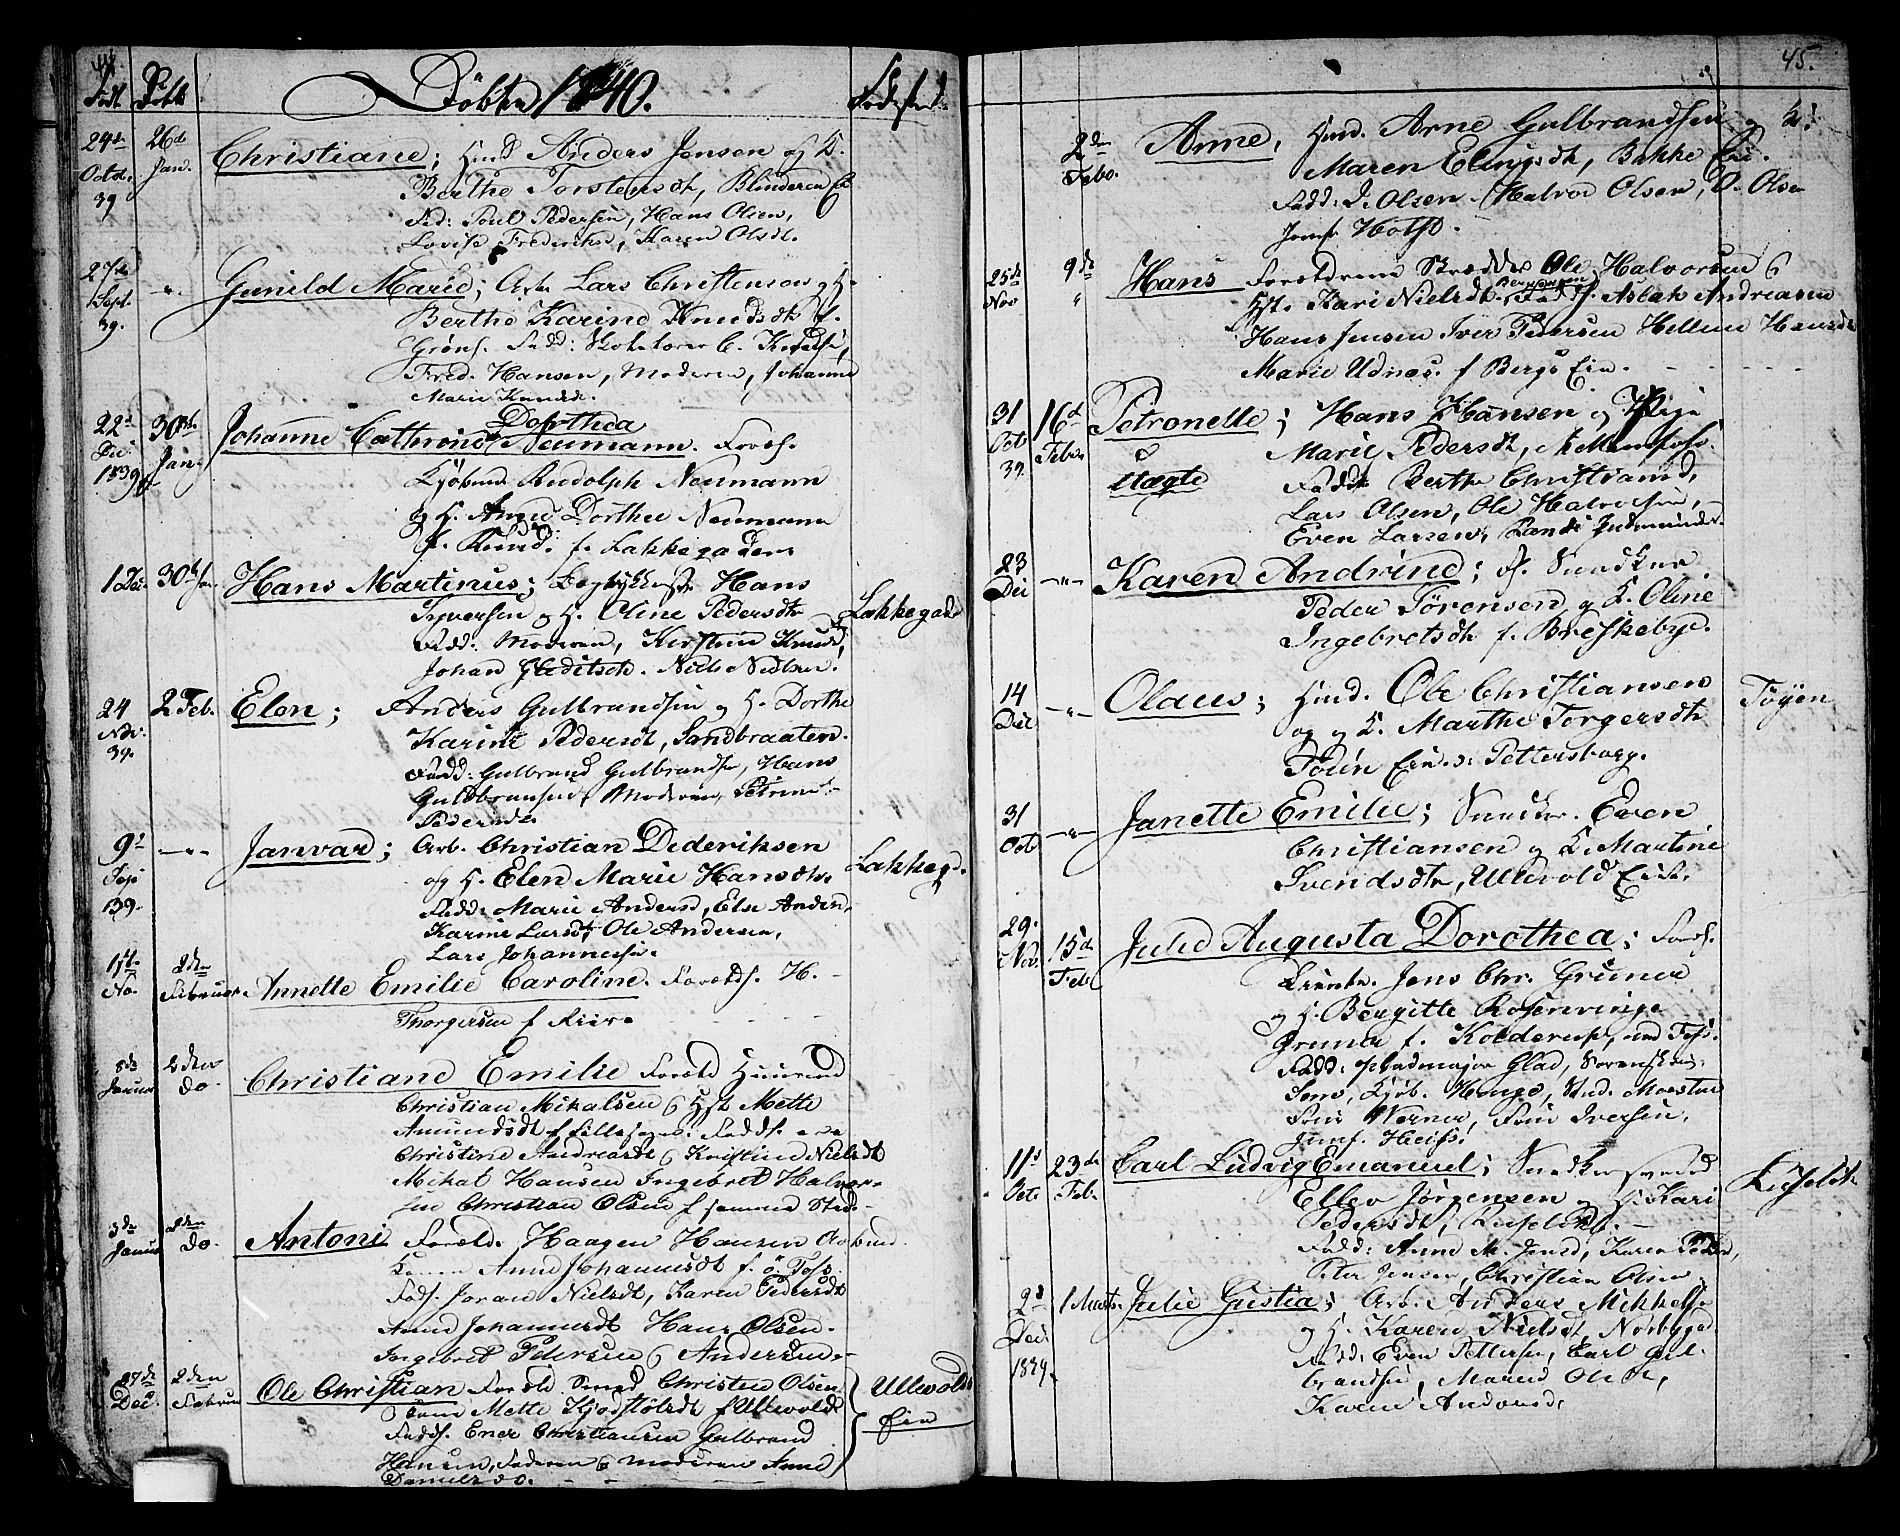 44
Født Døbt Döbte 1840. Fødested
24de Octbr. 39 26de Jan. Christiane; Hmd Anders Jensen og K.
Berthe Torstensdt, Blinderen E
Fad: Poul Pedersen, Hans Olsen,
Lovise Frederiksd, Karen Olsdt.
27de Sept. 39. " Gunild Marie; Arb. Lars Christensen og K.
Berthe Karine Knudsdtr f.
Grøns. Fadd: C. Knudsen,
Fred. Hansen, Moderen, Johanne
Marie Knudsd.
22d Dec 1839 30te Jan. Johanne Cathrine Dorthea Neumann. Foræ.
Kjøbmd Rudolph Neumann
og K. Anne Dorthe Neumann
f. Lakkegaden
1 Dec. 30te Jan Hans Martinus; Hans
Syversen og K. Oline Pedersdtr Lakkegade
Fadd: Moderen, Kirstein Knuds,
Johan Gleditsch. Niels Nielsen.
24 Nov. 39. 2 Feb. Elen; Anders Gulbrandsen og K. Dorthe
Karine Pedersdt, Sandbraaten.
Fadd: Gulbrand Gulbrandsen, Hans
Guldbransen, Moderen, Petrine
Pedersd.
9d Sep 39. —"— Janvad; Arb. Christian Dederiksen
og K. Elen Marie Hansdtr. Lakkeg.
Fadd: Marie Andersd, Else Andersd,
Karine Larsdt, Ole Andersen,
Lars Johannesen.
1ste No. 2den Februar Annette Emilie Caroline. Foræld. H.
Thorgersen f Kiir.
8de Januar 2den do. Christiane Emilie Foræld Huusmd
Christian Mikalsen & Hst Mette
Amundsdt f Lilleh Fadd. ere
Christine Andreasdt & Kristine Nielsdt
Mikal Hansen Ingebret Halvor-
sen Christian Olsen f samme Sted.
3de Januar 2den do. Antoni Foræld. Haagen Hansen Arbmd.
Konen Anne Johannesdt f. ö. Foss.
Fads. Joran Nielsdt, Karen Pedersdt
Anne Johannesdt Hans Olsen.
Ingebret Pedersen & Andersen.
27de Dec. 2den Februar Ole Christian Foræld. Smed Christen Olsen Ullevolds
Kone Mette Kjodstølsdt f Ullevolds Ein
Fadd. Ener Christiansen Gulbrand
Hansen, Faderen & Moderen Anne
Danielsd.
45.
2den Febr. Anne, Hmd. Arne Gulbrandsen og K.
Maren Elingsdt, Bakke Ein.
Fadd: D. Olsen, Halvor Olsen, O. Olsen
Jomf Holst.
25de Nov 9de " Hans Forældrene Skrædder Ole Halvorsen &
Hst. Kari Nielsdt Fadd. Aslak Andreasen
Hans Jensen Iver Pedersen Hellene Hansdt
Marie Udnæs. f Bergs Ein.
31 Oct 39. 16d Febr Petronelle; Hans Hansen og Pige
Uægte Marie Pedersdt,
Fadd. Berthe Christiansd,
Lars Olsen, Ole Halvorsen,
Even Larsen,
23 Dec —"— Karen Andrine; Snedker
Peder Sørensen og K. Oline
Ingebretsdt f. Breskebye.
14 Dec —"— Olaus; Hmd. Ole Christiansen Tøyen
og K. Marthe Torgersdt
Töien Ein. Pettersborg.
31 Oct —"— Janette Emilie; Snedker. Even
Christiansen og K. Martine
Svendsdtr, Ullevold Ein.
29. Nov. 15de Feb Julie Augusta Dorothea; Foræ.
Jens Chr. Gruner
og K. Bergitte Rosenvinge
Gruner f. Kolderup, ved Foss.
Fadd: Stadmajor Glad, Sorenskriv.
Sem, Kjøb. Stud. Morten
Werner, Iversen,
Jomf.
11d Oct 23de Feb. Carl Ludvig Emanuel; Snedkersvend
Ellev Jörgensen og K. Kari
Pedersdt,
Fadd: Anne M. Jensd, Karen Pedersd,
Peter Jensen, Christian Olsen
2d Dec. 1839. 1 Marts. Julie Gustia; Arb. Anders Mikkels
og K. Karen Nielsdt, Norbygad
Fadd: Even Pettersen, Carl Gul-
brandsen, Maren Olsdt,
Karen Andersd,